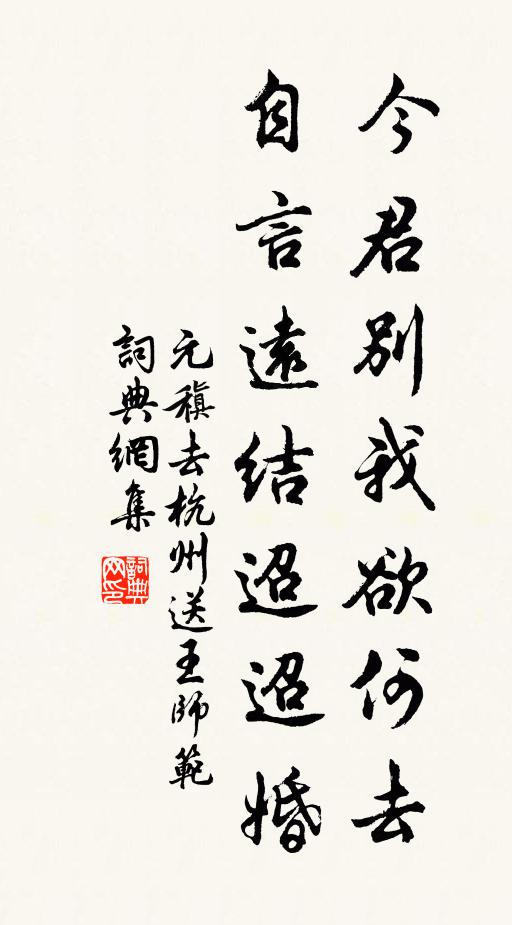 今君別我欲何去
自言遠結迢迢婚
元稹去杭州送王師範
詞典網集
詞典网印